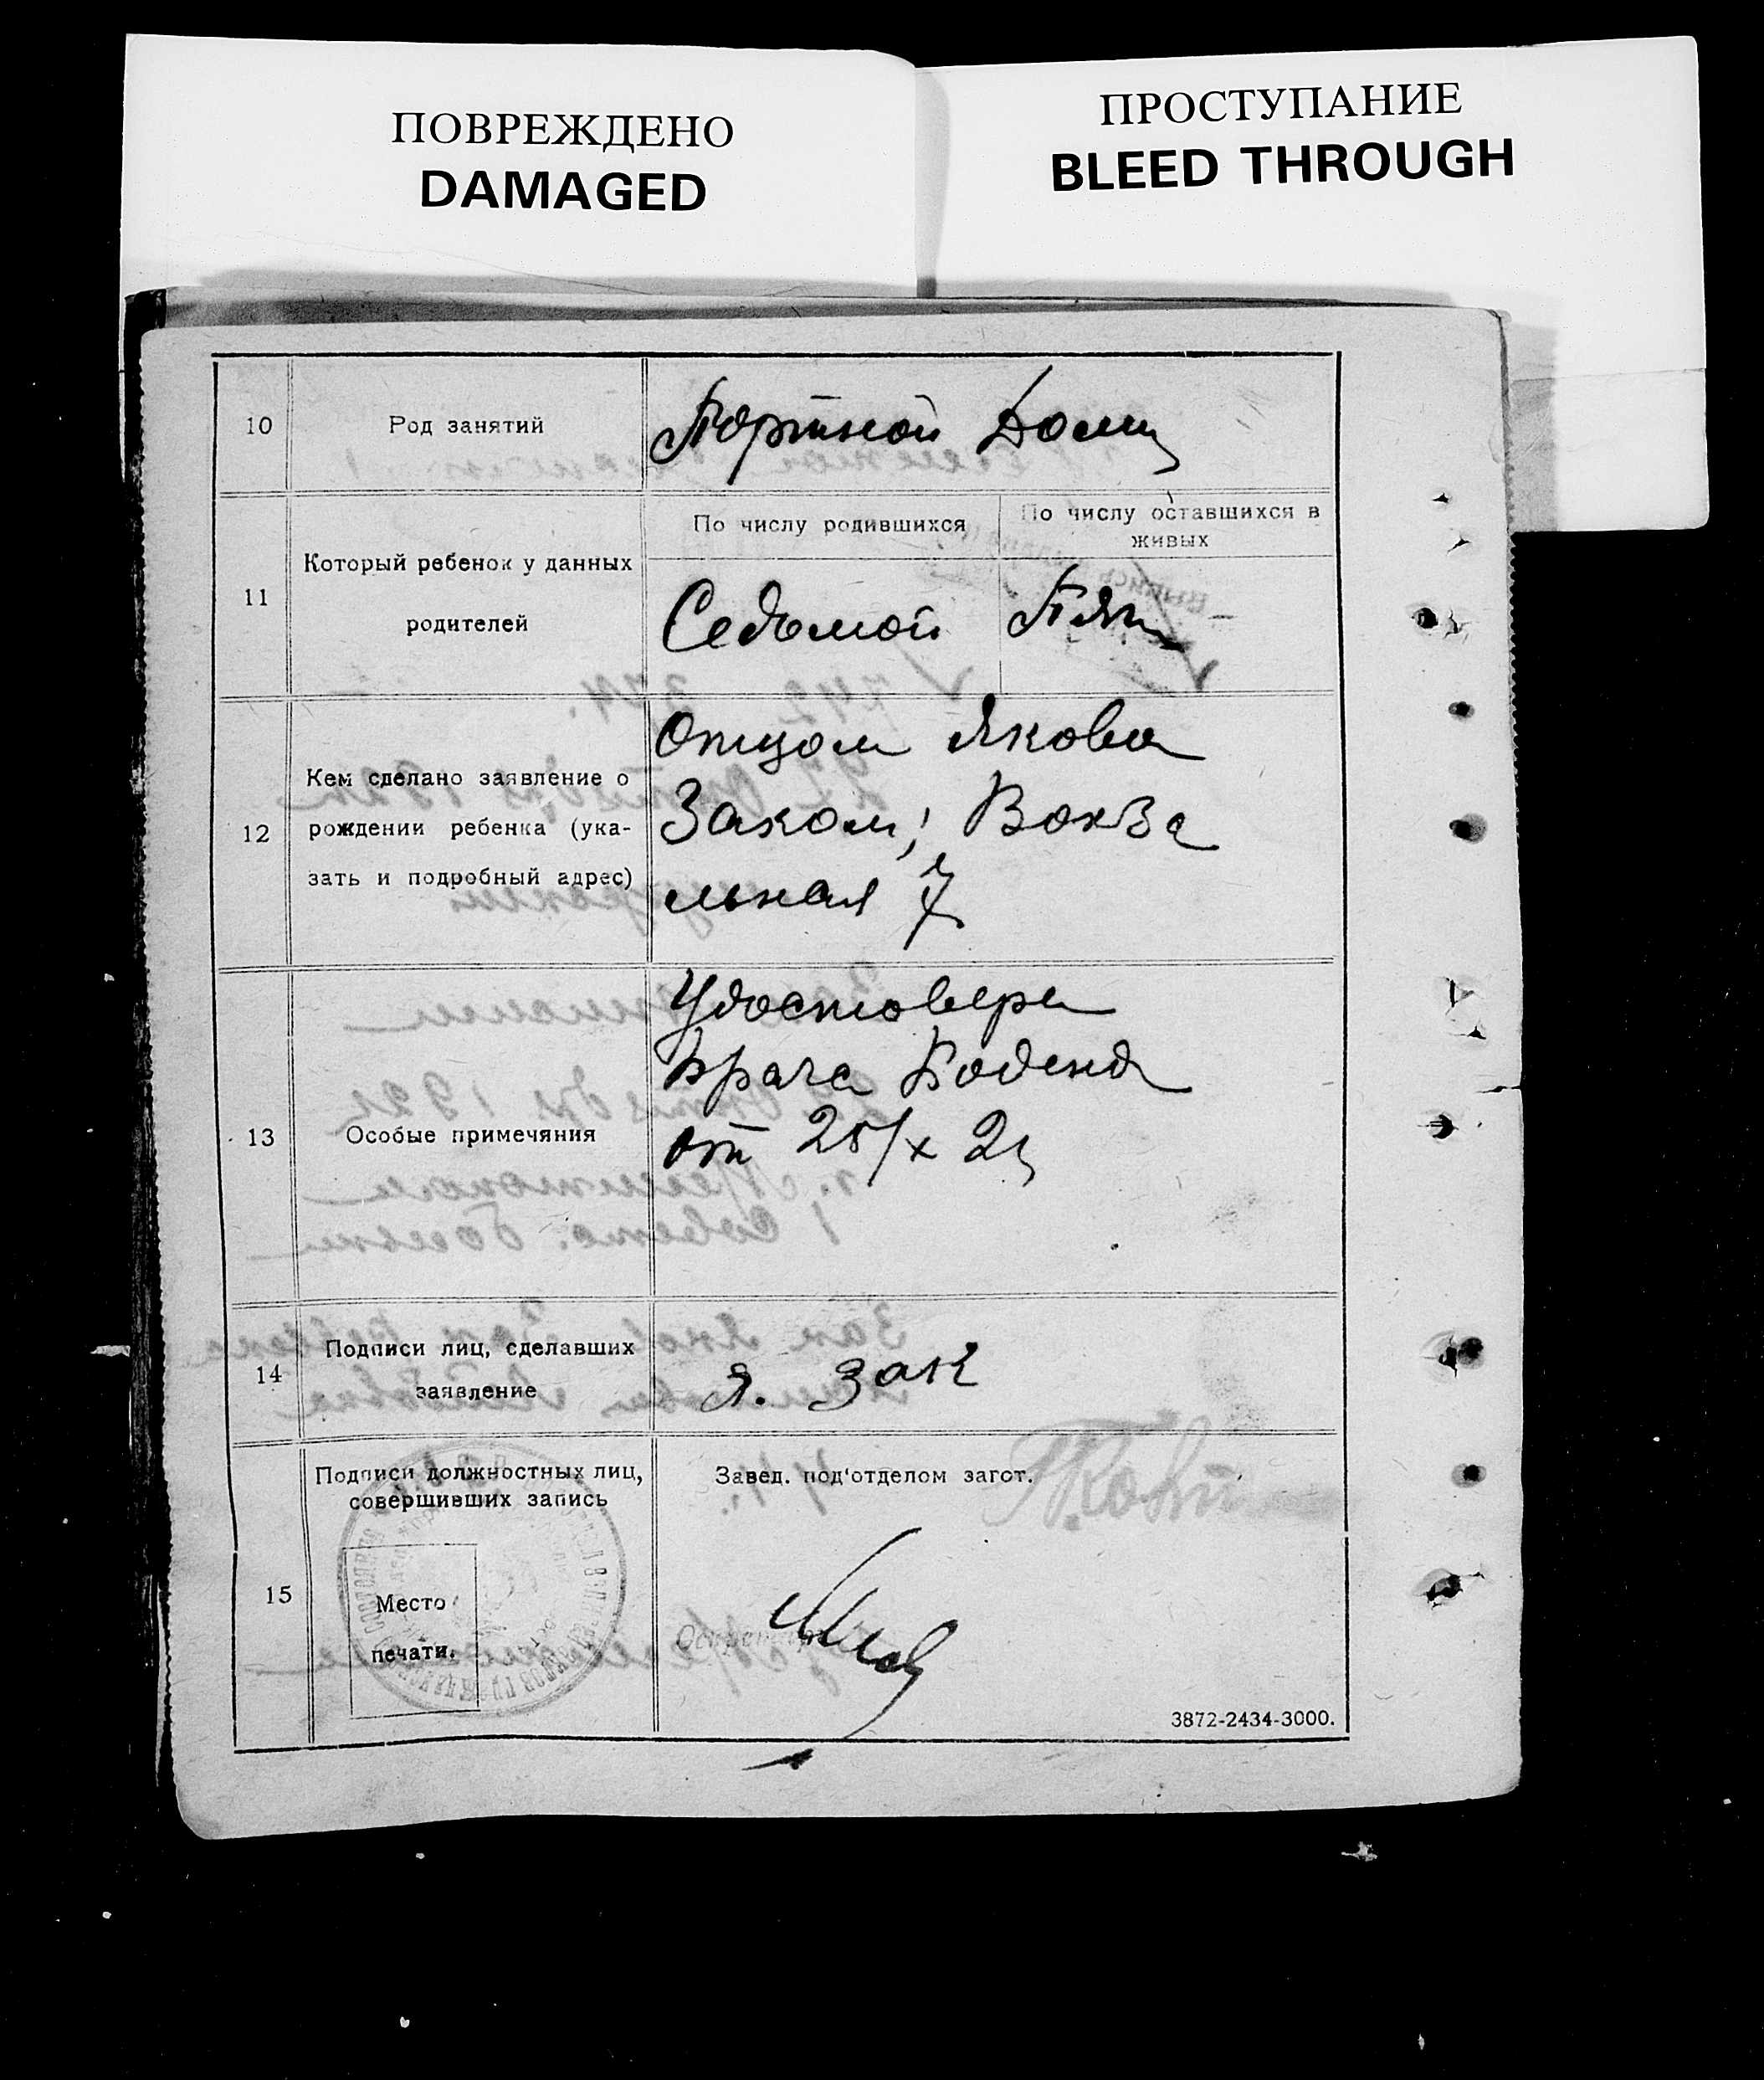 ПОВРЕЖДЕНО
DAMAGED
ПРОСТУПАНИЕ
BLEED THROUGH
10
Род занятий
Портной Дом
11
Который ребенок у данных
родителей
По числу родившихся
По числу оставшихся в
живых
Седьмой
Пят
12
Кем сделано заявление о
рождении ребенка (ука-
зать и подробный адрес)
Отцом Якова
Заком; Вокза
льная 7
13
Особые примечяния
Удостовере
врача
от 25/x 2
14
Подписи лиц, сделавших
заявление
Я. Зак
15
Подписи должностных лиц,
совершивших запись
Место
печати.
Завед. под'отделом загот.
3872-2434-3000.